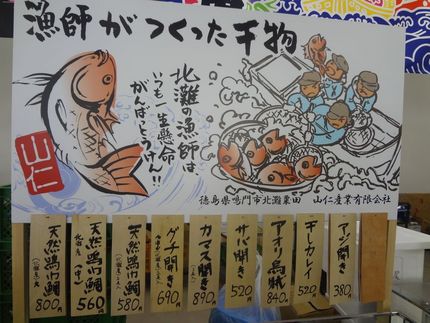 漁師がつくった干物
北灘の漁師は
いつも一生懸命
がんばっとうけん!!
山仁
徳島県鳴門市北灘粟田 山仁産業有限会社
アジ開き
380
デーカレイ
520
アオリ烏賊
840
サバ開き
520
カマス開き
890
グチ開き
690
天然鳴門鯛
580
天然鳴門鯛
560
天然鳴門鯛
800